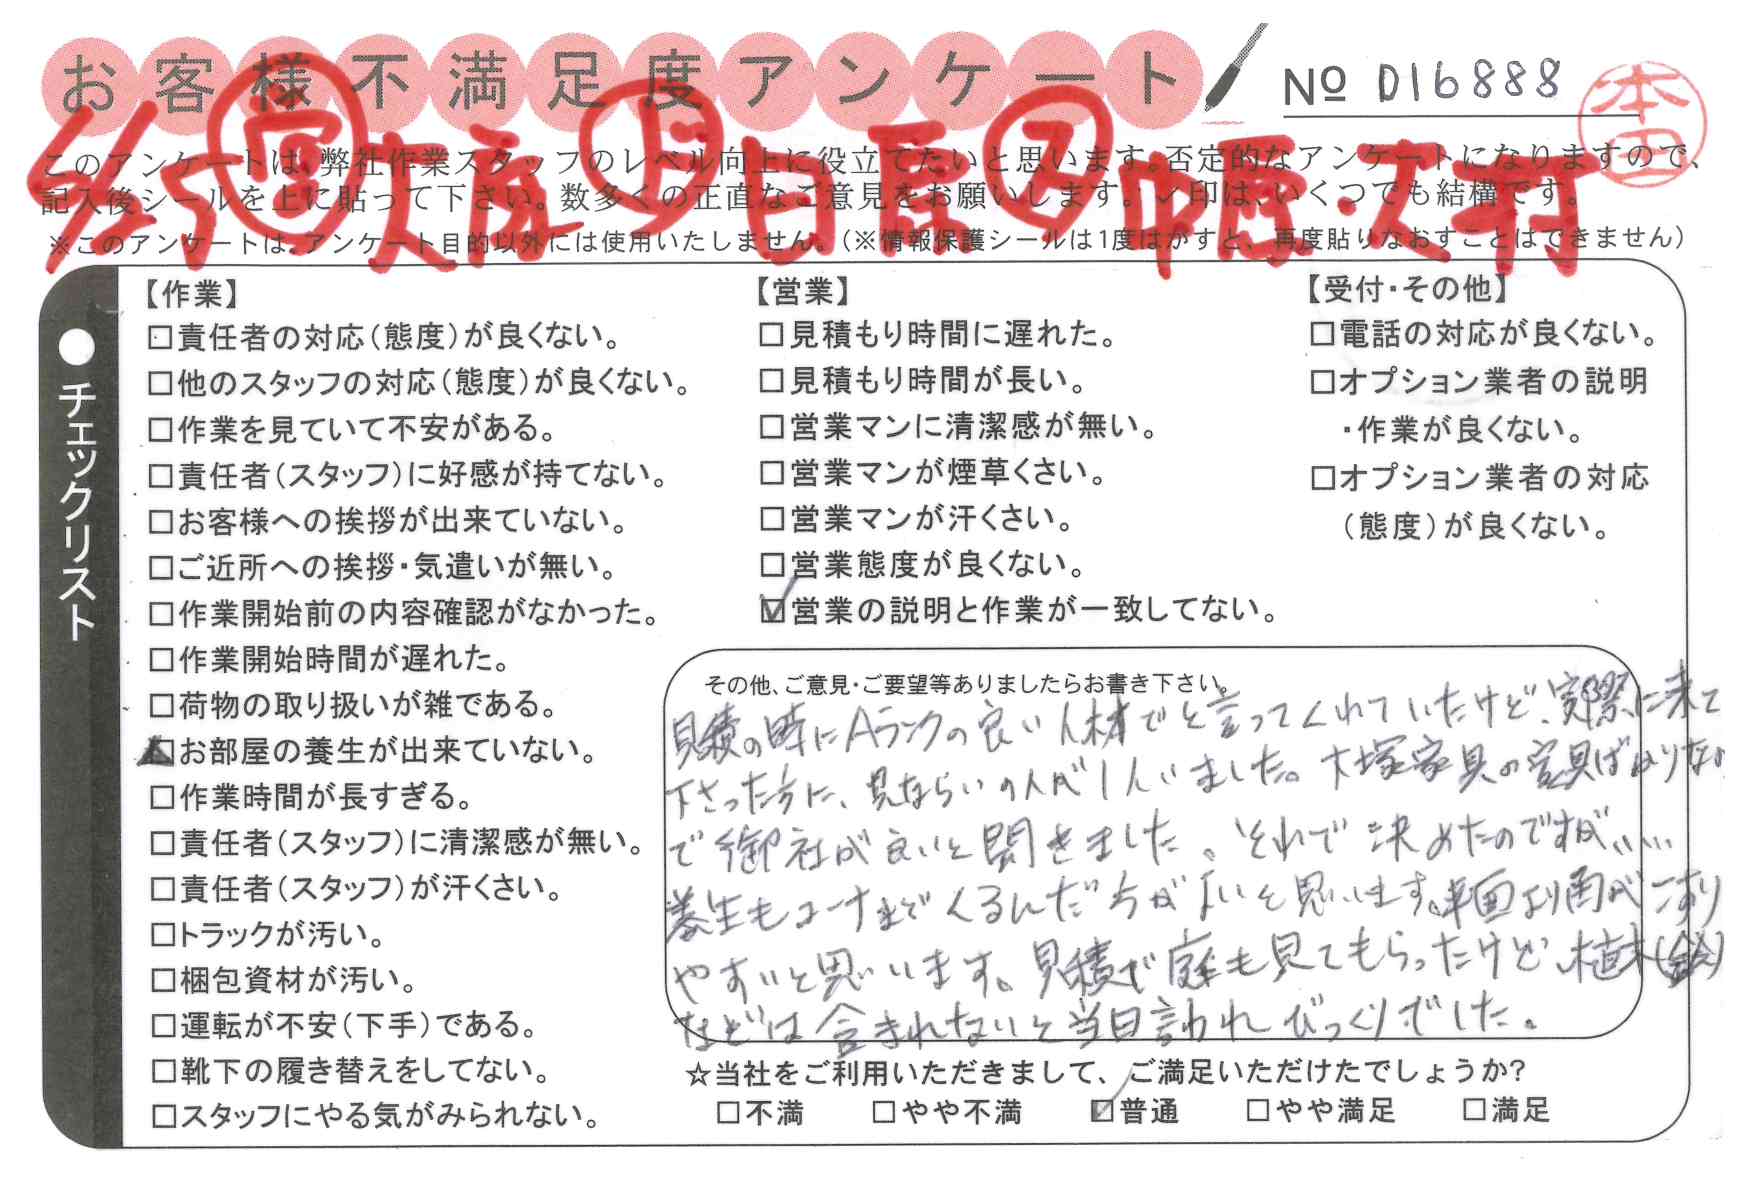 お客様不満足度アンケート
Nº D16888
本田
このアンケートは、弊社作業スタッフのレベル向上に役立てたいと思います。否定的なアンケートになりますので、
記入後シールを上に貼って下さい。数多くの正直なご意見をお願いします。✓印は、いくつでも結構です。
※このアンケートは、アンケート目的以外には使用いたしません。(※情報保護シールは1度はがすと、再度貼りなおすことはできません)
●チェックリスト
【作業】
□責任者の対応(態度)が良くない。
□他のスタッフの対応(態度)が良くない。
□作業を見ていて不安がある。
□責任者(スタッフ)に好感が持てない。
□お客様への挨拶が出来ていない。
□ご近所への挨拶・気遣いが無い。
□作業開始前の内容確認がなかった。
□作業開始時間が遅れた。
□荷物の取り扱いが雑である。
□お部屋の養生が出来ていない。
□作業時間が長すぎる。
□責任者(スタッフ)に清潔感が無い。
□責任者(スタッフ)が汗くさい。
□トラックが汚い。
□梱包資材が汚い。
□運転が不安(下手)である。
□靴下の履き替えをしてない。
□スタッフにやる気がみられない。
【営業】
□見積もり時間に遅れた。
□見積もり時間が長い。
□営業マンに清潔感が無い。
□営業マンが煙草くさい。
□営業マンが汗くさい。
□営業態度が良くない。
☑営業の説明と作業が一致してない。
【受付・その他】
□電話の対応が良くない。
□オプション業者の説明
・作業が良くない。
□オプション業者の対応
(態度)が良くない。
その他、ご意見・ご要望等ありましたらお書き下さい。
見積の時にAランクの良い人材でと言ってくれていたけど、実際に来て
下さった方に、見ならいの人が1人いました。大塚家具の家具ばかりなの
で御社が良いと聞きました。それで決めたのですが、、、、
養生もコーナまでくるんだ方がよいと思います。平面より角がこすり
やすいと思います。見積で庭も見てもらったけど、植木(鉢)
などは含まれないと当日言われびっくりでした。
☆当社をご利用いただきまして、ご満足いただけたでしょうか?
□不満 □やや不満 ☑普通 □やや満足 □満足